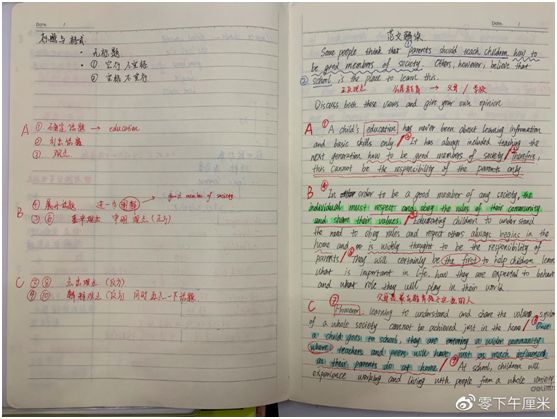 Date. /
标题与格式
· 无标题
· ① 空行不空格
② 空格不空行
A ① 确定话题 → education
② 引出话题
③ 观点
B ④ 展开话题 进一步
good member of society
⑤ ⑥
C ⑦ ⑧ 引出观点 (反方)
⑨ ⑩ 解释观点 (反方)
Date. /
范文解读
Some people think that parents should teach children how to
be good members of society. Others, however, believe that
school is the place to learn this.
正反观点 → 父母 / 学校
Discuss both these views and give your own opinion.
A ① A child's education has never been about learning information
and basic skills only / It has always included teaching the
next generation how to be good members of society. Therefore,
this cannot be the responsibility of the parents only.
B ④ In order to be a good member of any society, the
individual must respect and obey the rules of their community
and share their values. Educating children to understand
the need to obey rules and respect others always begins in the
home and is widely thought to be the responsibility of
parents. They will certainly be the first to help children learn
what is important in life, how they are expected to behave
and what role they will play in their world.
C ⑦
However, learning to understand and share the value system
of a whole society cannot be achieved just in the home / Once
a child goes to school, they are entering a wider community
where teachers and peers will have just as much influence
as their parents do at home. At school, children will
experience working and living with people from a whole variety
deli
零下午厘米